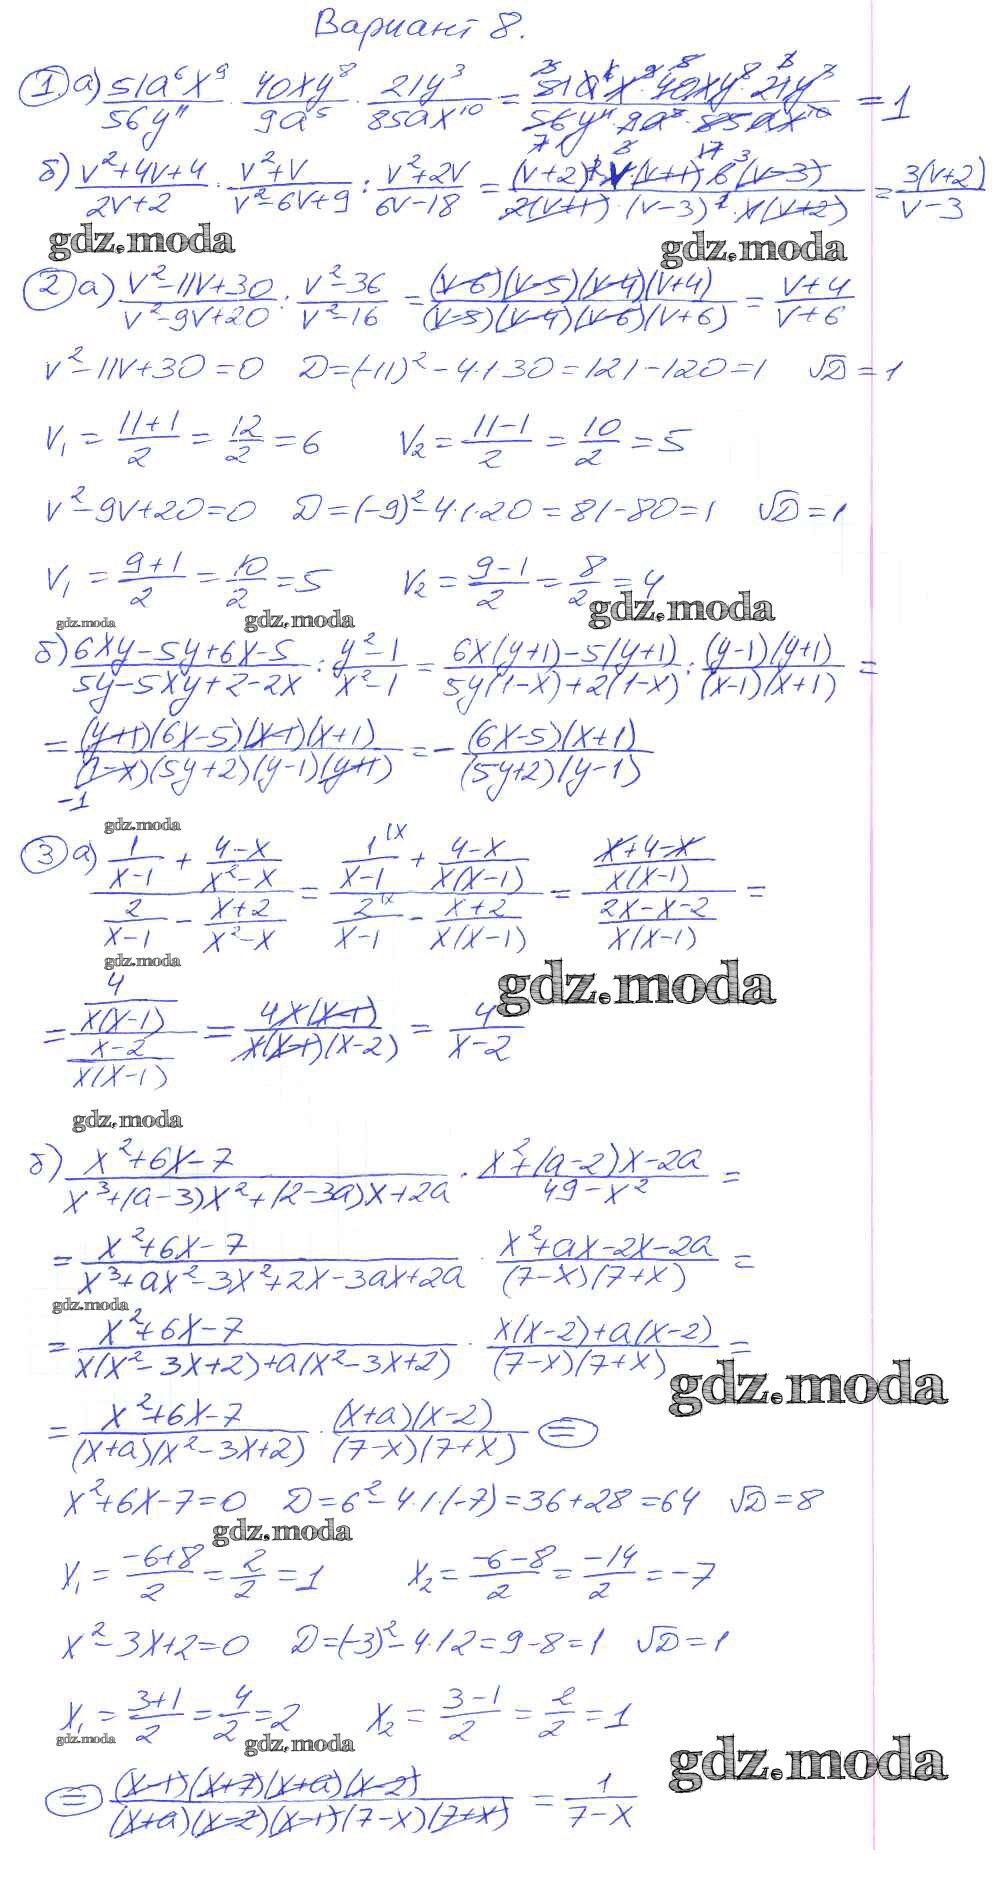 Вариант 8.
① а) 51a⁶x⁹/56y¹¹ · 40xy⁸/9a⁵ · 21y³/85ax¹⁰ = 51a⁶x⁹·40xy⁸·21y³/56y¹¹·9a⁵·85ax¹⁰ = 1
б) v²+4v+4/2v+2 · v²+v/v²-6v+9 : v²+2v/6v-18 = (v+2)²·v·(v+1)·6(v-3)/2(v+1)·(v-3)²·v(v+2) = 3(v+2)/v-3
gdz.moda gdz.moda
② а) v²-11v+30/v²-9v+20 : v²-36/v²-16 = (v-6)(v-5)(v-4)(v+4)/(v-5)(v-4)(v-6)(v+6) = v+4/v+6
v²-11v+30=0 D=(-11)²-4·1·30=121-120=1 √D=1
v₁ = 11+1/2 = 12/2 = 6 v₂ = 11-1/2 = 10/2 = 5
v²-9v+20=0 D=(-9)²-4·1·20=81-80=1 √D=1
v₁ = 9+1/2 = 10/2 = 5 v₂ = 9-1/2 = 8/2 = 4
gdz.moda gdz.moda gdz.moda
б) 6xy-5y+6x-5/5y-5xy+2-2x : y²-1/x²-1 = 6x(y+1)-5(y+1)/5y(1-x)+2(1-x) : (y-1)(y+1)/(x-1)(x+1) =
= (y+1)(6x-5)(x-1)(x+1)/(1-x)(5y+2)(y-1)(y+1) = - (6x-5)(x+1)/(5y+2)(y-1)
-1
gdz.moda
③ а) (1/x-1 + 4-x/x²-x)/(2/x-1 - x+2/x²-x) = (1/x-1 + 4-x/x(x-1))/(2/x-1 - x+2/x(x-1)) = (x+4-x/x(x-1))/(2x-x-2/x(x-1)) =
gdz.moda gdz.moda
= (4/x(x-1))/(x-2/x(x-1)) = 4x(x-1)/x(x-1)(x-2) = 4/x-2
gdz.moda
б) x²+6x-7/x³+(a-3)x²+(2-3a)x+2a · x²+(a-2)x-2a/49-x² =
= x²+6x-7/x³+ax²-3x²+2x-3ax+2a · x²+ax-2x-2a/(7-x)(7+x) =
gdz.moda
= x²+6x-7/x(x²-3x+2)+a(x²-3x+2) · x(x-2)+a(x-2)/(7-x)(7+x) =
gdz.moda
= x²+6x-7/(x+a)(x²-3x+2) · (x+a)(x-2)/(7-x)(7+x) =
x²+6x-7=0 D=6²-4·1·(-7)=36+28=64 √D=8
gdz.moda
x₁ = -6+8/2 = 2/2 = 1 x₂ = -6-8/2 = -14/2 = -7
x²-3x+2=0 D=(-3)²-4·1·2=9-8=1 √D=1
x₁ = 3+1/2 = 4/2 = 2 x₂ = 3-1/2 = 2/2 = 1
gdz.moda gdz.moda gdz.moda
= (x-1)(x+7)(x+a)(x-2)/(x+a)(x-2)(x-1)(7-x)(7+x) = 1/7-x